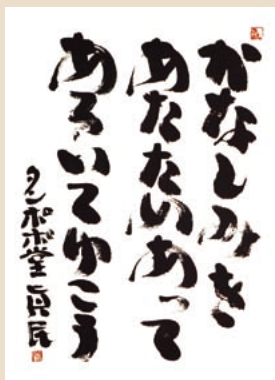 かなしみを
あたためあって
あるいてゆこう
タンポポ堂 真民